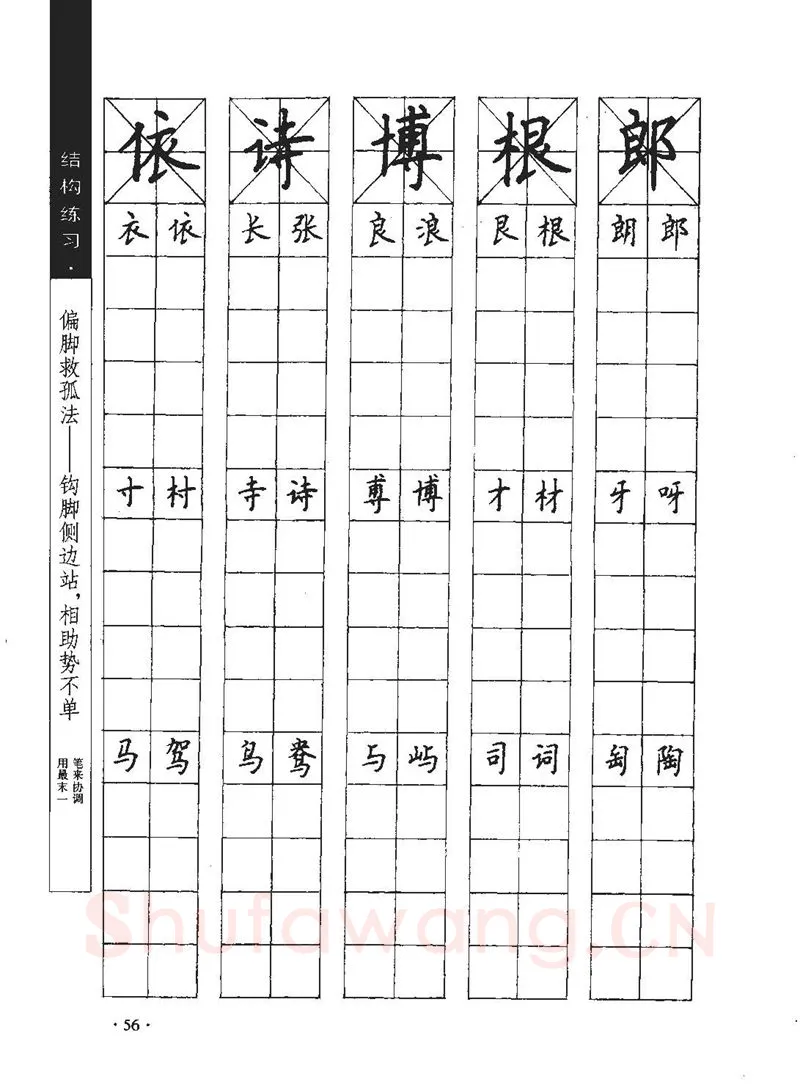 结构练习·
偏脚救孤法——钩脚侧边站，相助势不单
用最末一
笔来协调
依 诗 博 根 郎
衣 依 长 张 良 浪 艮 根 朗 郎
寸 村 寺 诗 尃 博 才 材 牙 呀
马 驾 鸟 鸯 与 屿 司 词 匋 陶
Shufawang.CN
·56·